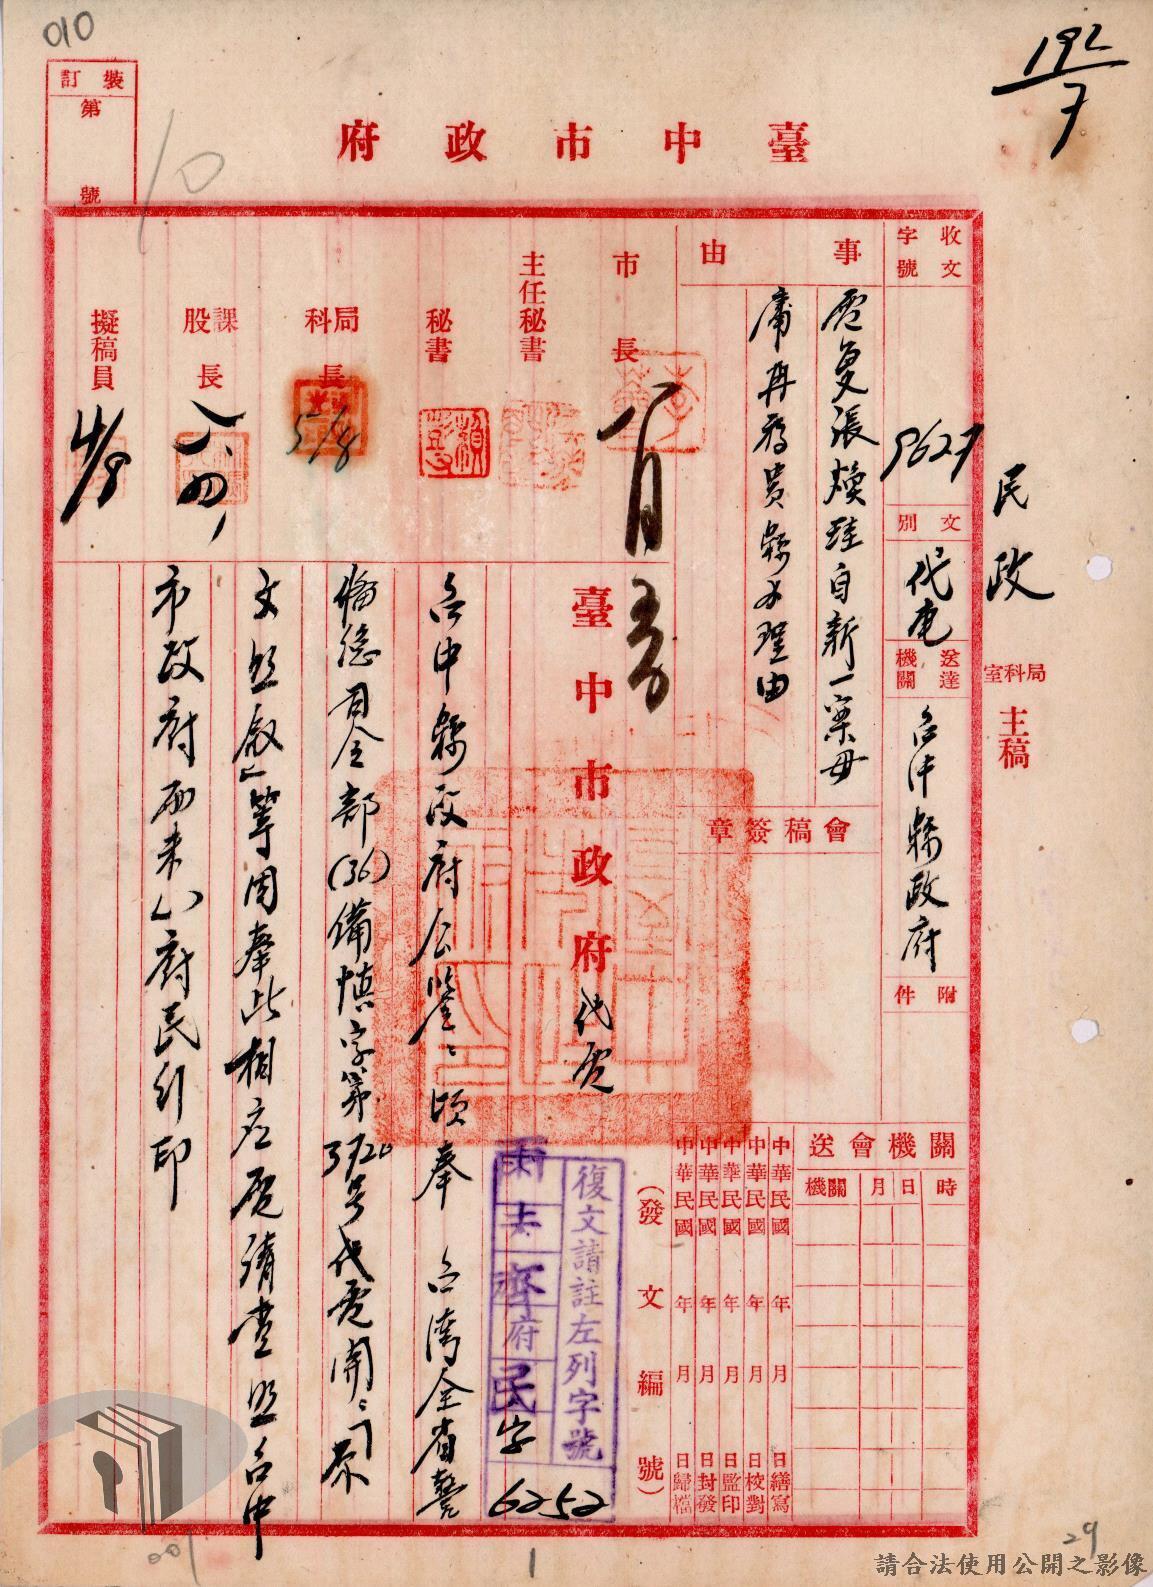 010
192/7
裝訂
第 號
10
臺中市政府
民政
局科室
主稿
收文字號
9627
文別
代電
送達機關
台中縣政府
附件
事由
電复張煥珪自新一案毋
庸再移貴縣办理由
會稿簽章
會送機關
機關 月 日 時
市長
八月五
主任秘書
秘書
局科長
5/8
課股長
八、四、
擬稿員
4/8
中華民國 年 月 日繕寫
中華民國 年 月 日校對
中華民國 年 月 日監印
中華民國 年 月 日封發
中華民國 年 月 日歸檔
(發文編號)
臺中市政府代電
復文請註左列字號
府民字
6252
台中縣政府公鑒：頃奉 台灣全省警
備總司令部(36)備慎字第 號代電開：「
文照敘」等因奉此相应電請查照台中
市政府 府民 印
001
1
29
請合法使用公開之影像